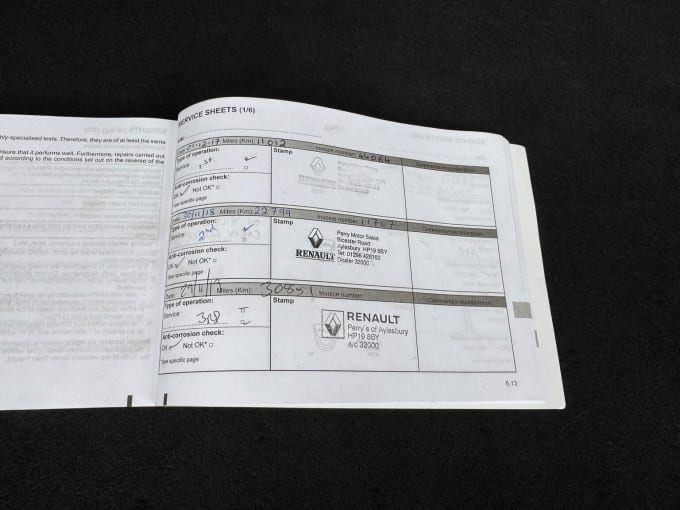 hly-specialised tests. Therefore, they are of at least the same
nsure that it performs well. Furthermore, repairs carried out
d according to the conditions set out on the reverse of the
SERVICE SHEETS (1/6)
VIN:
Date: 07-12-17 Miles (Km): 11012 Invoice number: 44064
Type of operation: Stamp Comments/miscellaneous
Service 1st
Anti-corrosion check:
OK Not OK*
*See specific page
Date: 30/11/18 Miles (Km): 22799 Invoice number: 11707
Type of operation: Stamp Comments/miscellaneous
Service 2nd
Perry Motor Sales
Bicester Road
Aylesbury HP19 8BY
Tel: 01296 426162
Dealer 32000
RENAULT
Anti-corrosion check:
OK Not OK*
*See specific page
Date: 29/11/19 Miles (Km): 30851 Invoice number
Type of operation: Stamp Comments/miscellaneous
Service 3rd
RENAULT
Perry's of Aylesbury
HP19 8BY
a/c 32000
Anti-corrosion check:
OK Not OK*
*See specific page
6.13